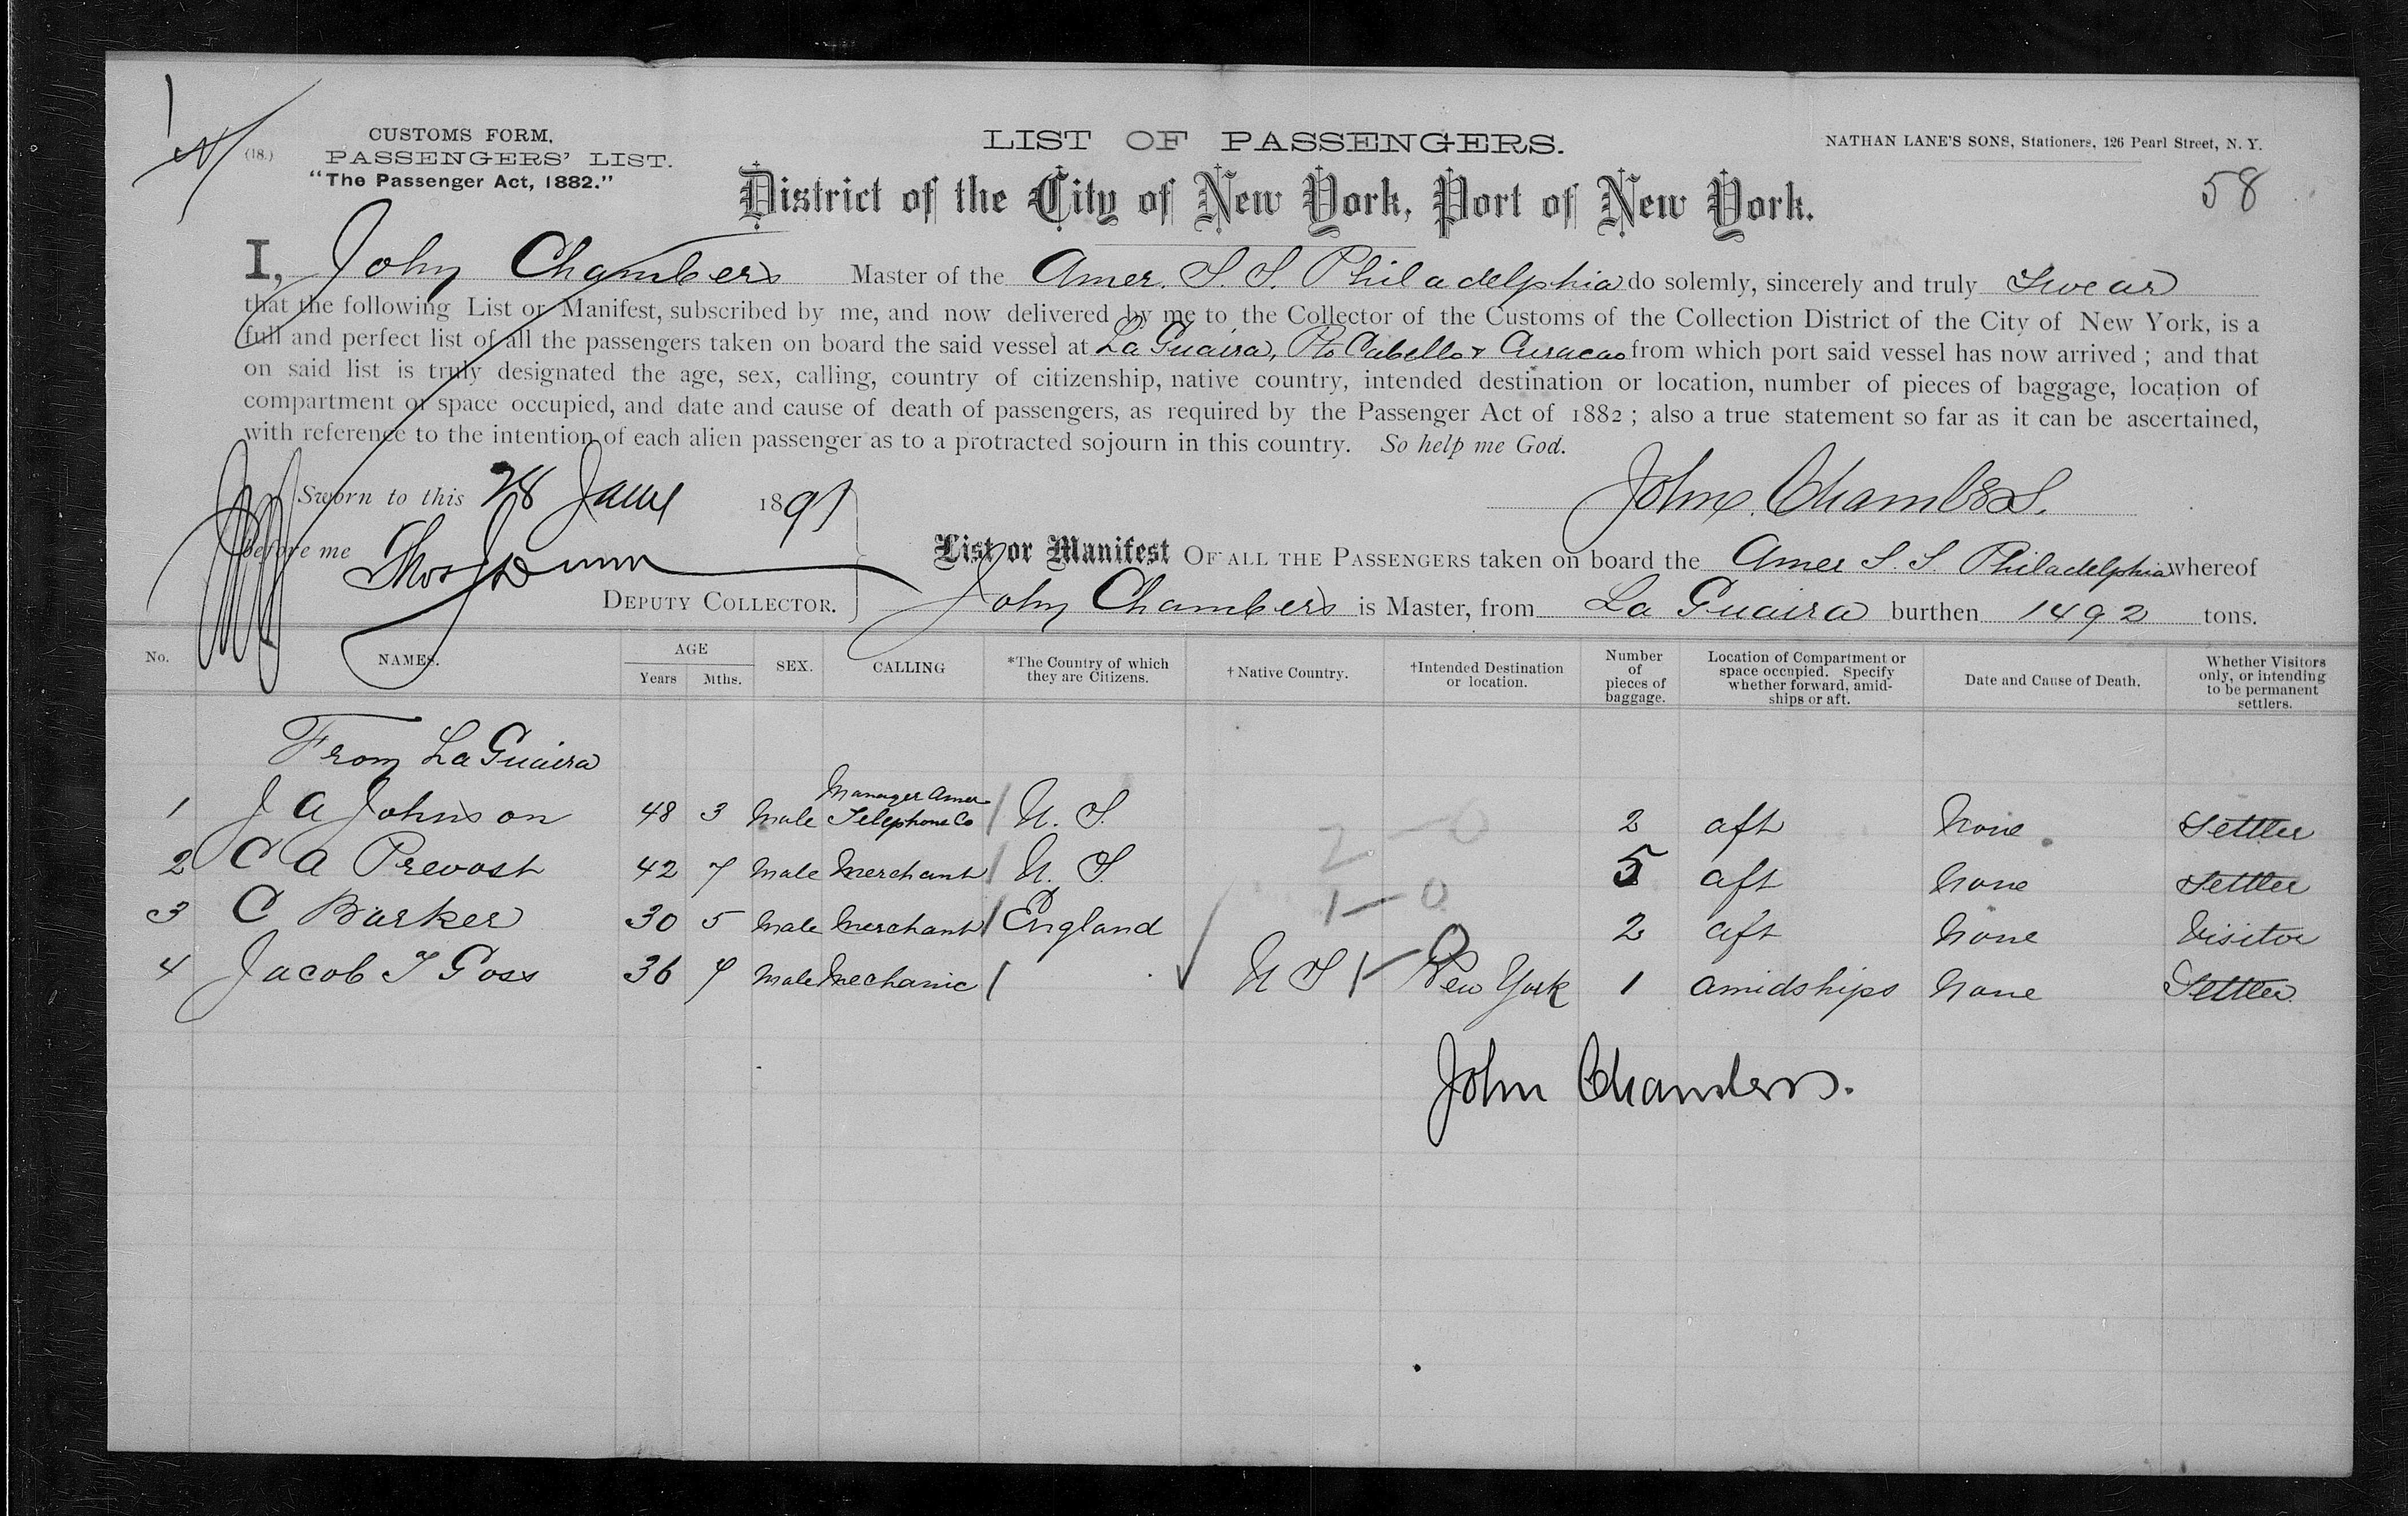 (18.)
CUSTOMS FORM,
PASSENGERS' LIST.
"The Passenger Act, 1882."
LIST OF PASSENGERS.
NATHAN LANE'S SONS, Stationers, 126 Pearl Street, N. Y.
District of the City of New York, Port of New York.
58
I, John Chambers Master of the Amer. S. S. Philadelphia do solemly, sincerely and truly Swear
that the following List or Manifest, subscribed by me, and now delivered by me to the Collector of the Customs of the Collection District of the City of New York, is a
full and perfect list of all the passengers taken on board the said vessel at La Guaira, Pto Cabello & Curacao from which port said vessel has now arrived ; and that
on said list is truly designated the age, sex, calling, country of citizenship, native country, intended destination or location, number of pieces of baggage, location of
compartment or space occupied, and date and cause of death of passengers, as required by the Passenger Act of 1882 ; also a true statement so far as it can be ascertained,
with reference to the intention of each alien passenger as to a protracted sojourn in this country. So help me God.
Sworn to this 28 1891
John Chambers.
before me
DEPUTY COLLECTOR.
List or Manifest OF ALL THE PASSENGERS taken on board the Amer S. S. Philadelphia whereof
John Chambers is Master, from La Guaira burthen 1492 tons.
No. NAMES. AGE Years Mths. SEX. CALLING *The Country of which they are Citizens. †Native Country. †Intended Destination or location. Number of pieces of baggage. Location of Compartment or space occupied. Specify whether forward, amidships or aft. Date and Cause of Death. Whether Visitors only, or intending to be permanent settlers.
From La Guaira
1 J A Johnson 48 3 Male Manager Amer Telephone Co / U. S. 2 — 0 2 aft None Settler
2 C A Prevost 42 7 Male Merchant / U. S. 5 aft None Settler
3 C Barker 30 5 Male Merchant / England 1 — 0 2 aft None Visitor
4 Jacob T Goss 36 7 Male Mechanic / U S 1 — 0 New York 1 amidships None Settler
John Chambers.